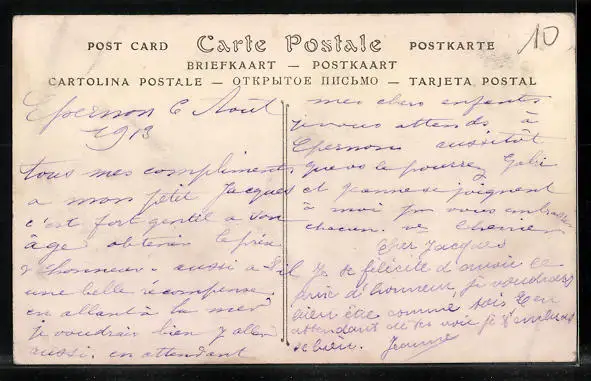 10
POST CARD Carte Postale POSTKARTE
BRIEFKAART — POSTKAART
CARTOLINA POSTALE — ОТКРЫТОЕ ПИСЬМО — TARJETA POSTAL
Epernon 6 Aout
1913
tous mes compliments
a mon petit Jacques
c'est fort gentil a son
âge obtenir le prix
d'honneur. aussi a t'il
une belle récompense
en allant à la mer
je voudrais bien y aller
aussi. en attendant
mes chers enfants
je vous attends à
Epernon aussitôt
que vs le pourrez Gabi
et Jeanne se joignent
à moi pr vous embrasser
chacun. ve Chenier
Cher Jacques
Je te félicite d'avoir le
prix d'honneur je voudrais
bien être comme toi. En
attendant de te voir je t'embrasse
bien. Jeanne